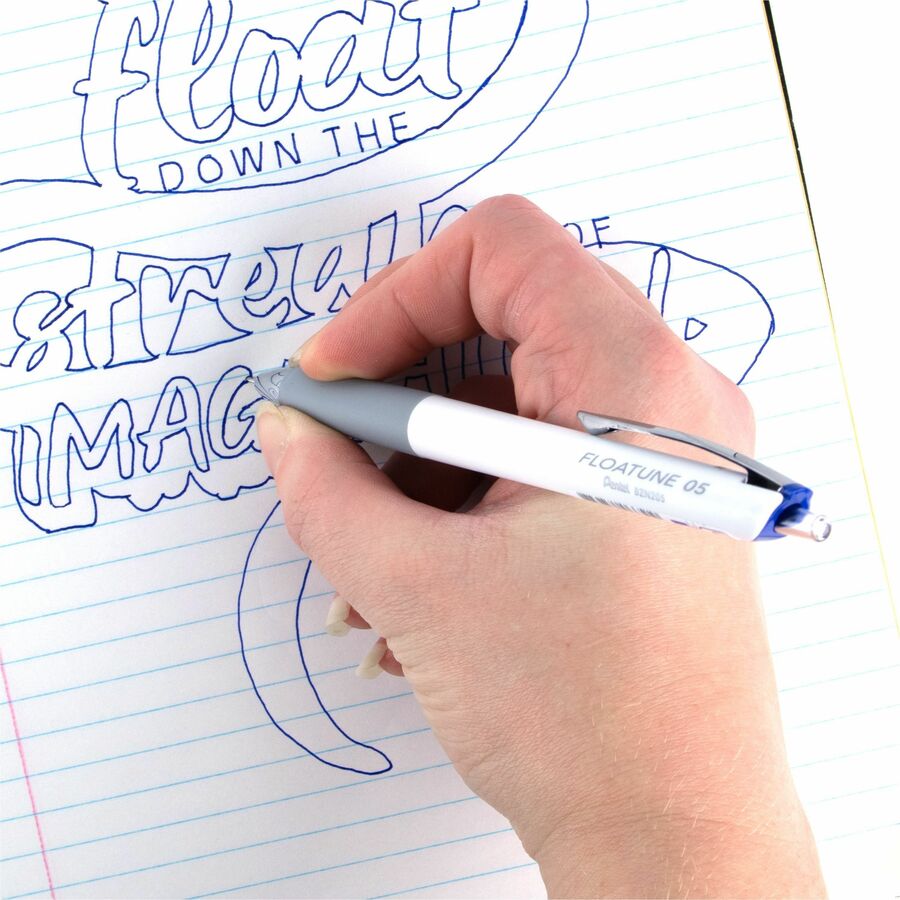 float
DOWN THE
stream OF
IMAG
FLOATUNE 05
Pentel BZN205